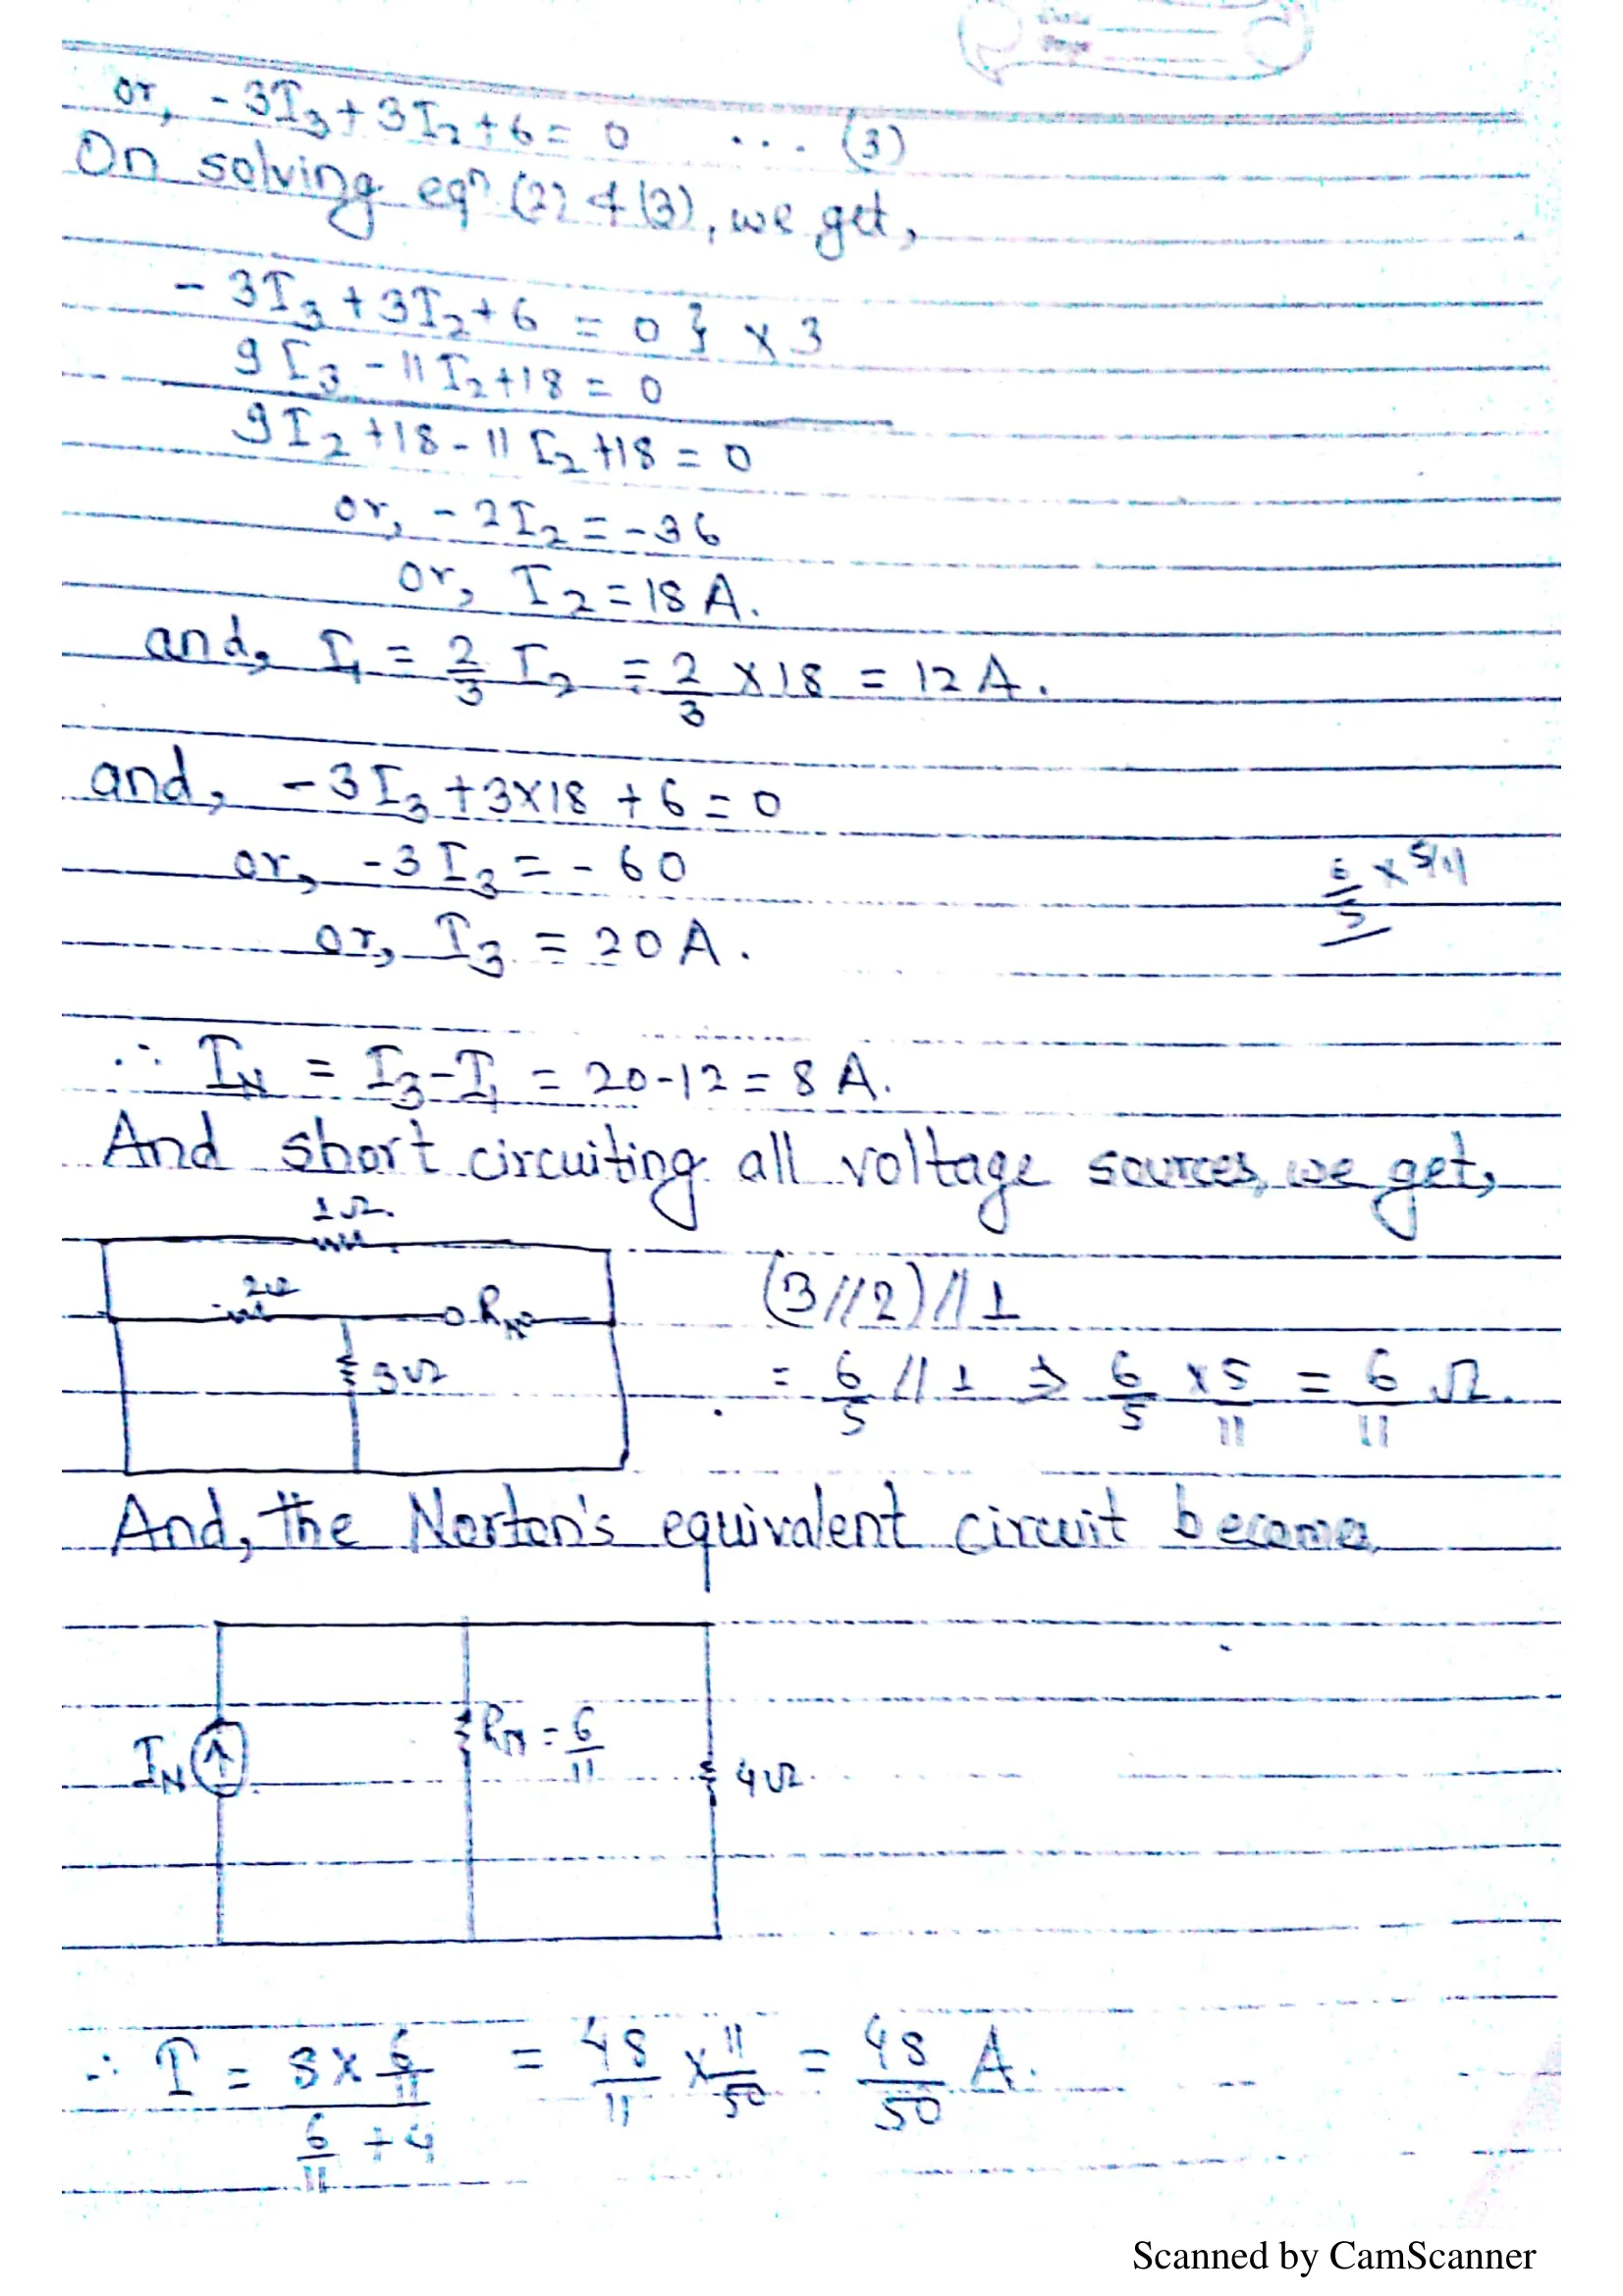 Date
Page
or, -3I₃ + 3I₂ + 6 = 0 ... (3)
On solving eqⁿ (2) & (3), we get,
- 3I₃ + 3I₂ + 6 = 0 } × 3
9I₃ - 11I₂ + 18 = 0
9I₂ + 18 - 11I₂ + 18 = 0
or, -2I₂ = -36
or, I₂ = 18 A.
and, I₁ = 2/3 I₂ = 2/3 × 18 = 12 A.
and, -3I₃ + 3×18 + 6 = 0
or, -3I₃ = -60
6/5 × 5/11
or, I₃ = 20 A.
∴ I_N = I₃ - I₁ = 20 - 12 = 8 A.
And short circuiting all voltage sources, we get,
1Ω.
2Ω
R_N
3Ω
(3//2)//1
= 6/5 // 1 ⇒ 6/5 × 5/11 = 6/11 Ω.
And, the Norton's equivalent circuit become
I_N
R_N = 6/11
4Ω
∴ I = (8 × 6/11)/(6/11 + 4) = 48/11 × 11/50 = 48/50 A.
Scanned by CamScanner